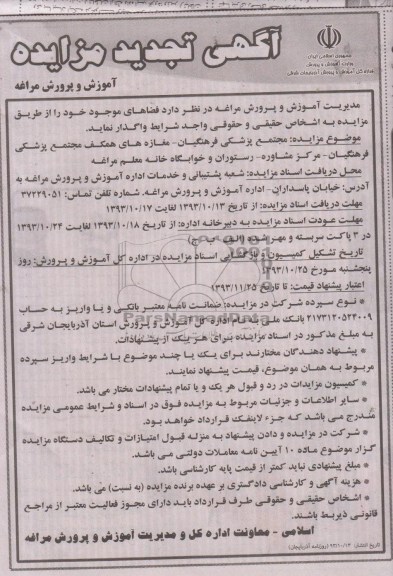 آگهی تجدید مزایده
جمهوری اسلامی ایران
وزارت آموزش و پرورش
اداره کل آموزش و پرورش آذربایجان شرقی
آموزش و پرورش مراغه
مدیریت آموزش و پرورش مراغه در نظر دارد فضاهای موجود خود را از طریق
مزایده به اشخاص حقیقی و حقوقی واجد شرایط واگذار نماید.
موضوع مزایده: مجتمع پزشکی فرهنگیان - مغازه های همکف مجتمع پزشکی
فرهنگیان - مرکز مشاوره - رستوران و خوابگاه خانه معلم مراغه
محل دریافت اسناد مزایده: شعبه پشتیبانی و خدمات اداره آموزش و پرورش مراغه به
آدرس: خیابان پاسداران - اداره آموزش و پرورش مراغه. شماره تلفن تماس: ۳۷۲۲۹۰۵۱
مهلت دریافت اسناد مزایده: از تاریخ ۱۳۹۳/۱۰/۱۳ لغایت ۱۳۹۳/۱۰/۱۷
مهلت عودت اسناد مزایده به دبیرخانه اداره: از تاریخ ۱۳۹۳/۱۰/۱۸ لغایت ۱۳۹۳/۱۰/۲۴
در ۳ پاکت سربسته و مهر شده (الف - ب - ج)
تاریخ تشکیل کمیسیون و بازگشایی اسناد مزایده در اداره کل آموزش و پرورش: روز
پنجشنبه مورخ ۱۳۹۳/۱۰/۲۵
اعتبار پیشنهاد قیمت: تا تاریخ ۱۳۹۳/۱۱/۲۵
* نوع سپرده شرکت در مزایده: ضمانت نامه معتبر بانکی و یا واریز به حساب
۲۱۷۳۱۲۰۵۲۳۰۰۹ بانک ملی به نام اداره کل آموزش و پرورش استان آذربایجان شرقی
به مبلغ مذکور در اسناد مزایده برای هر یک از پیشنهادات.
* پیشنهاد دهندگان مختارند برای یک یا چند موضوع با شرایط واریز سپرده
مربوط به همان موضوع، قیمت پیشنهاد نمایند.
* کمیسیون مزایدات در رد و قبول هر یک و یا تمام پیشنهادات مختار می باشد.
* سایر اطلاعات و جزئیات مربوط به مزایده فوق در اسناد و شرایط عمومی مزایده
مندرج می باشد که جزء لاینفک قرارداد خواهد بود.
* شرکت در مزایده و دادن پیشنهاد به منزله قبول امتیازات و تکالیف دستگاه مزایده
گزار موضوع ماده ۱۰ آیین نامه معاملات دولتی می باشد.
* مبلغ پیشنهادی نباید کمتر از قیمت پایه کارشناسی باشد.
* هزینه آگهی و کارشناسی دادگستری بر عهده برنده مزایده (به نسبت) می باشد.
* اشخاص حقیقی و حقوقی طرف قرارداد باید دارای مجوز فعالیت معتبر از مراجع
قانونی ذیربط باشند.
اسلامی - معاونت اداره کل و مدیریت آموزش و پرورش مراغه
تاریخ انتشار: ۹۳/۱۰/۱۳ (روزنامه آذربایجان)
ParsNamadData